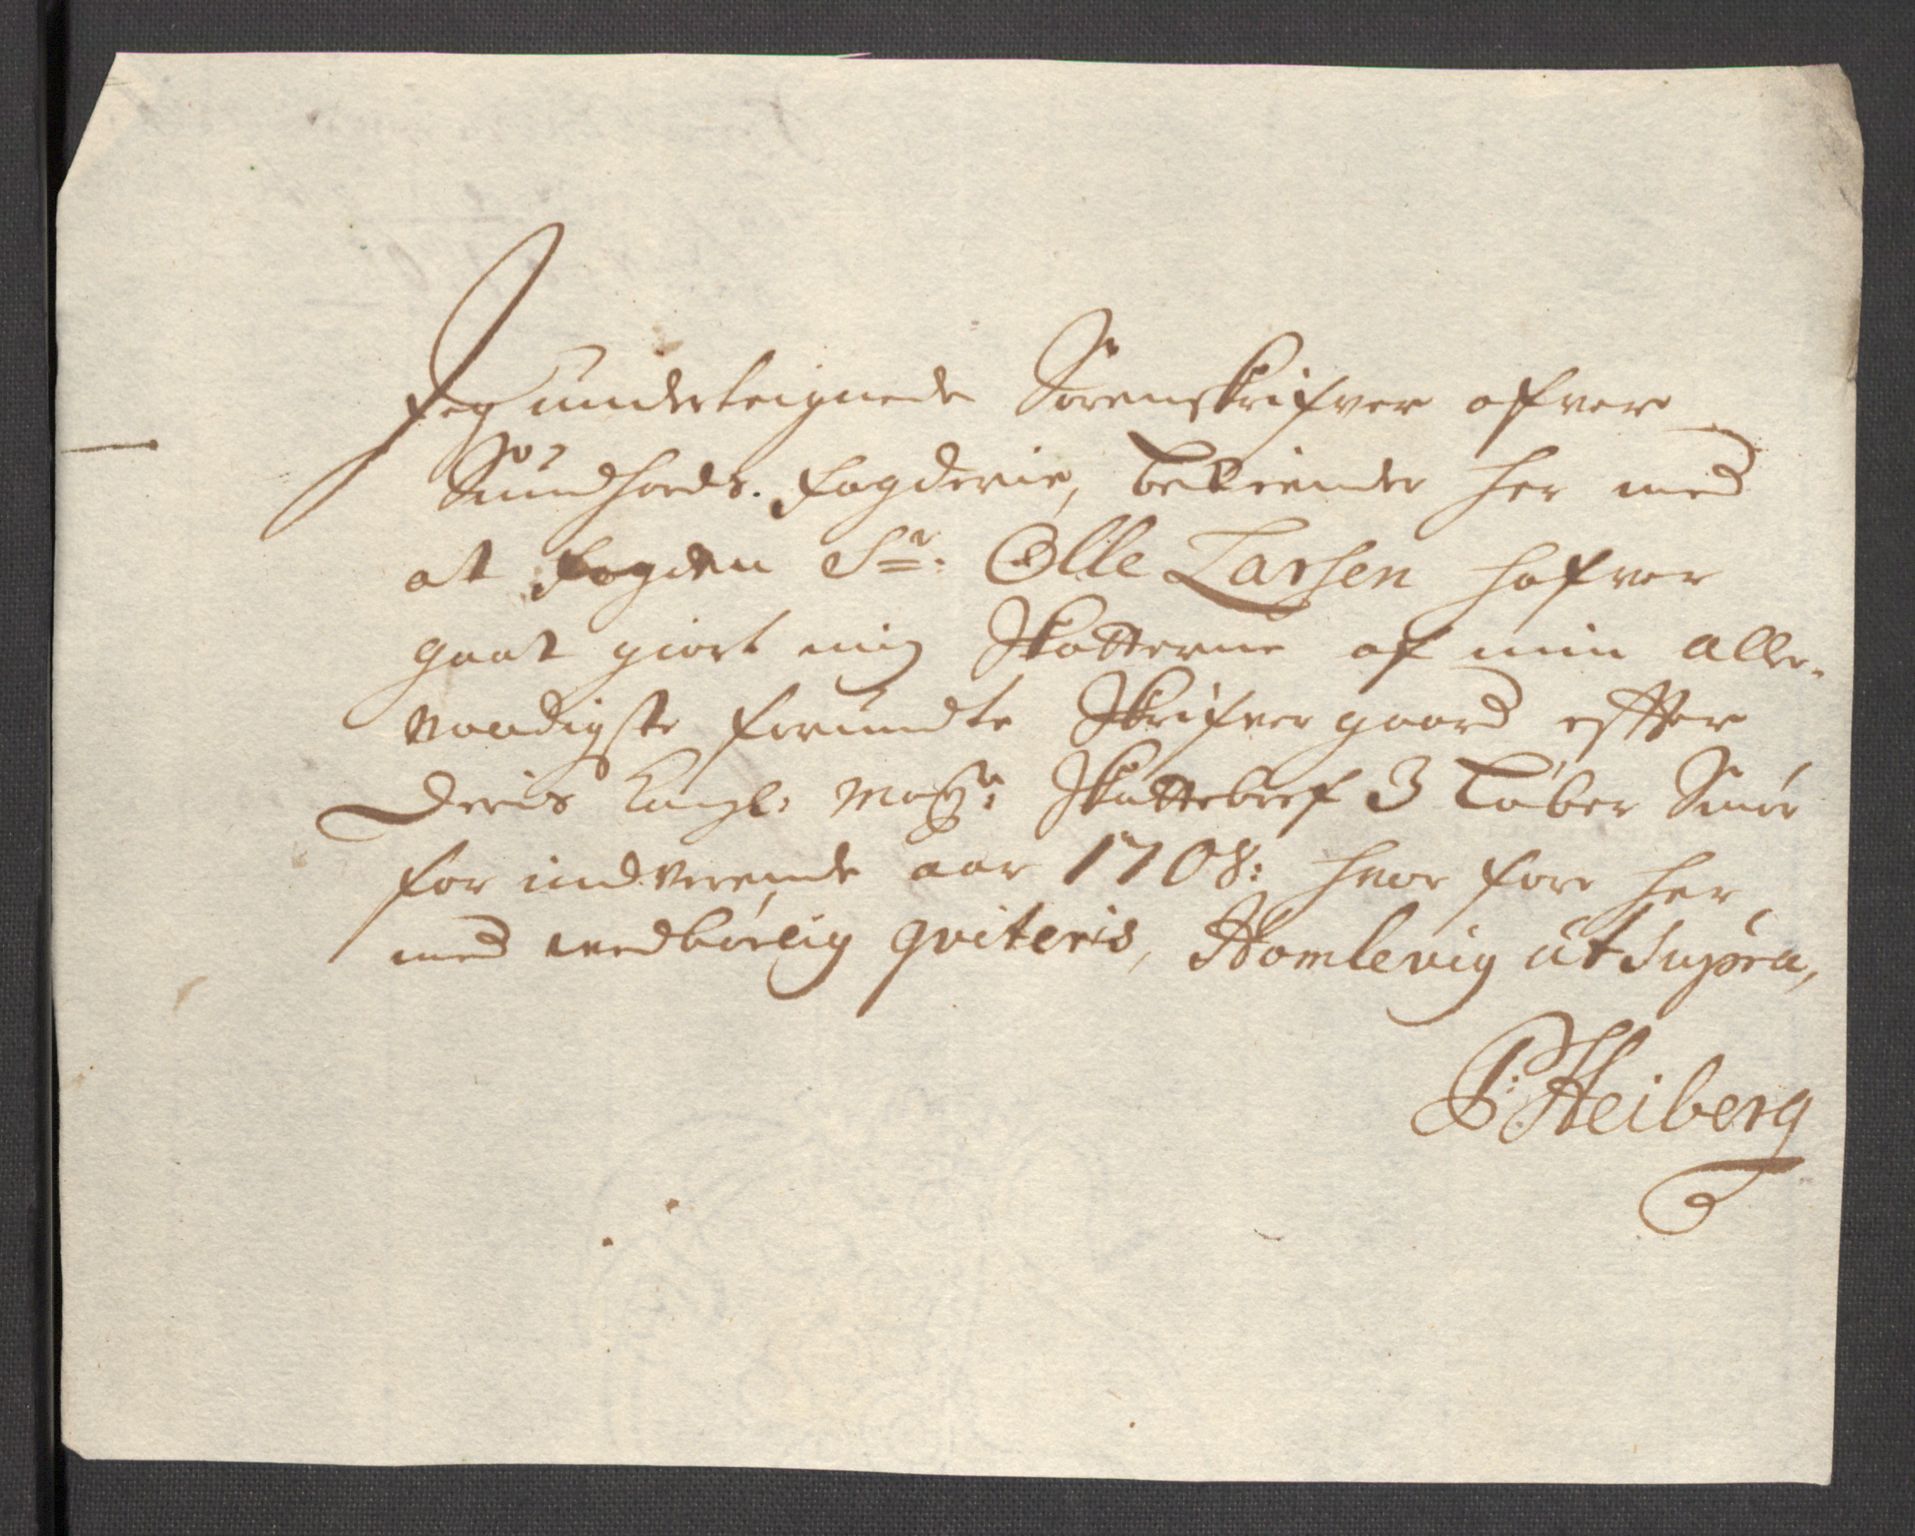 Jeg underteignede Sorenskrifver ofver
Sundhords. fogderie, bekiender her med
at fogden Sr. Olle Larsen hafver
gaat giort mig Skatterne af min Aller-
naadigste forundte Skrifver gaard effter
Deris Kongl: Mayts: Skattebref 3 Løber Smør
for indverende aar 1708: hvor fore her
med vedbørlig qviteris, Homlevig ut Supra,
P: Heiberg